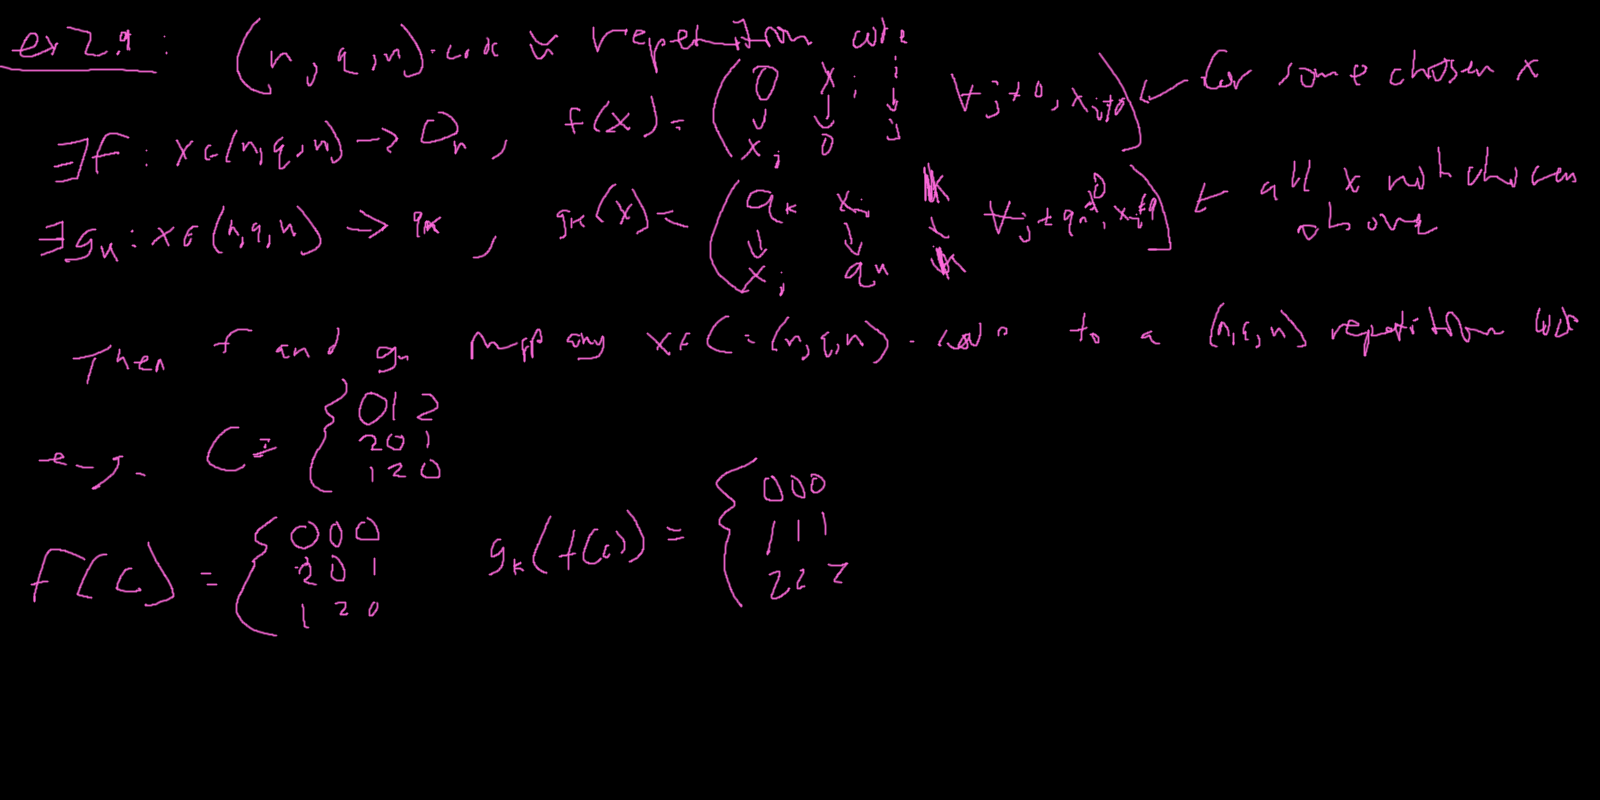 ex 2.9: (n, q, n)-code ≅ repetition code
∃f: x∈(n,q,n) → 0_n, f(x) = (0 ↓ x_i x_i ↓ 0 j ↓ j ∀j≠0, x_i≠0) ← for some chosen x
∃g_k: x∈(n,q,n) → q_k, g_k(x) = (q_k ↓ x_i x_i ↓ q_k ↓ ∀j≠q ) ← all x not chosen
above
Then f and g_k map any x∈C=(n,q,n)-code to a (n,q,n) repetition code
e.g. C = { 012
201
120
f(C) = { 000
201
120
g_k(f(C)) = { 000
111
222